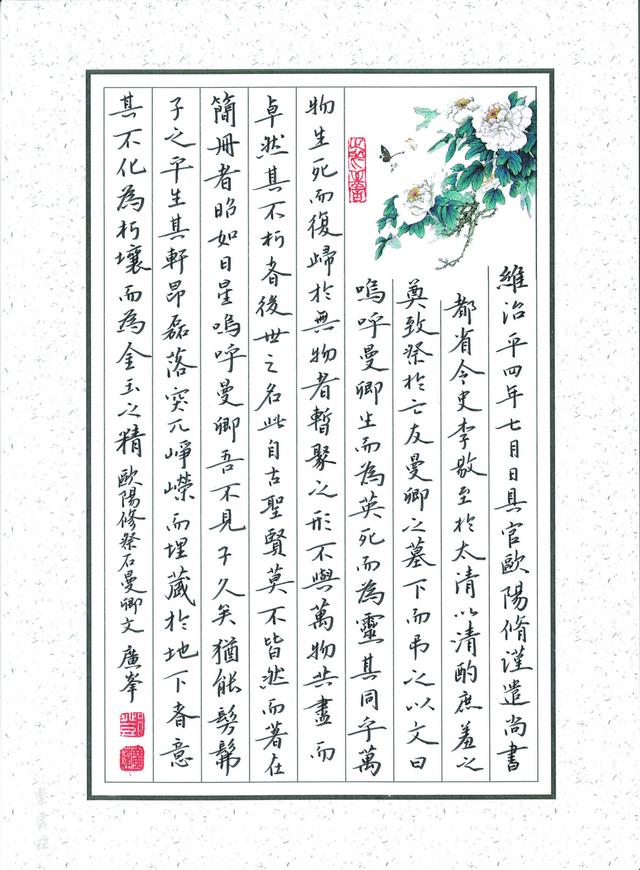 維治平四年七月日具官歐陽脩謹遣尚書
都省令史李敭至於太清以清酌庶羞之
奠致祭於亡友曼卿之墓下而弔之以文曰
嗚呼曼卿生而為英死而為靈其同乎萬
物生死而復歸於無物者暫聚之形不與萬物共盡而
卓然其不朽者後世之名此自古聖賢莫不皆然而著在
簡冊者昭如日星嗚呼曼卿吾不見子久矣猶能髣髴
子之平生其軒昂磊落突兀崢嶸而埋藏於地下者意
其不化為朽壤而為金玉之精 歐陽修祭石曼卿文 廣峯